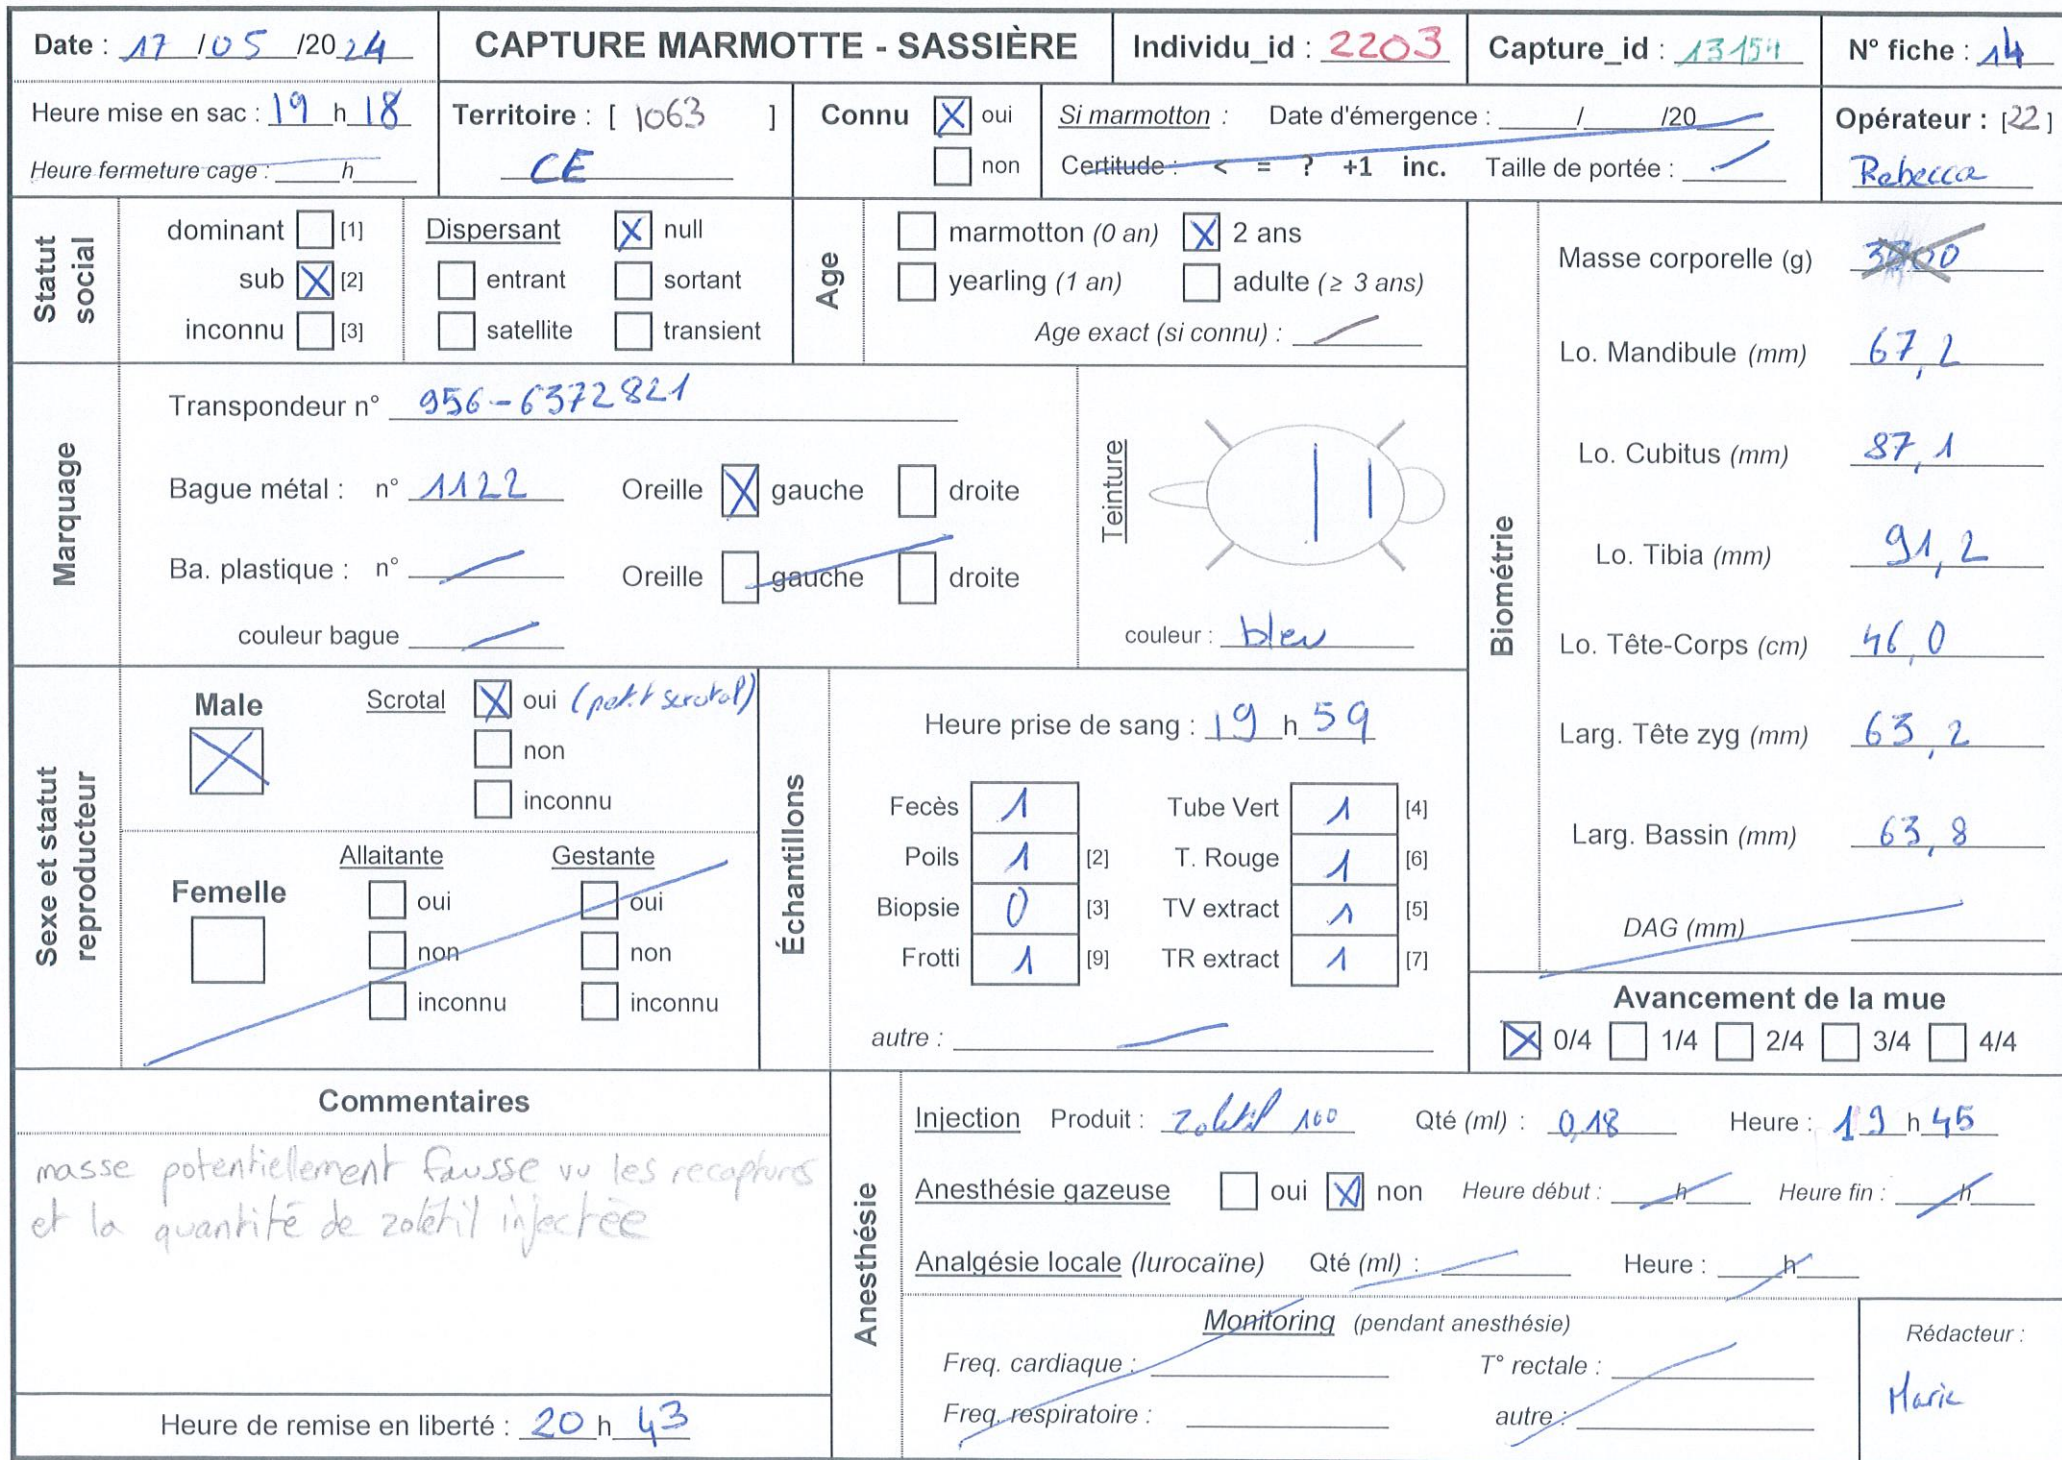 Date : 17 / 05 /2024
CAPTURE MARMOTTE - SASSIÈRE
Individu_id : 2203
Capture_id : 13154
N° fiche : 14
Heure mise en sac : 19 h 18
Heure fermeture cage : h
Territoire : [ 1063 ]
CE
Connu X oui
non
Si marmotton : Date d'émergence : / /20
Certitude : < = ? +1 inc. Taille de portée :
Opérateur : [22]
Rebecca
Statut social
dominant [1]
sub X [2]
inconnu [3]
Dispersant X null
entrant sortant
satellite transient
Age
marmotton (0 an) X 2 ans
yearling (1 an) adulte (≥ 3 ans)
Age exact (si connu) :
Marquage
Transpondeur n° 956-6372821
Bague métal : n° 1122 Oreille X gauche droite
Ba. plastique : n° Oreille gauche droite
couleur bague
Teinture
couleur : bleu
Biométrie
Masse corporelle (g)
Lo. Mandibule (mm) 67,2
Lo. Cubitus (mm) 87,1
Lo. Tibia (mm) 91,2
Lo. Tête-Corps (cm) 46,0
Larg. Tête zyg (mm) 63,2
Larg. Bassin (mm) 63,8
DAG (mm)
Avancement de la mue
X 0/4 1/4 2/4 3/4 4/4
Sexe et statut reproducteur
Male X
Scrotal X oui (petit scrotal)
non
inconnu
Femelle
Allaitante Gestante
oui oui
non non
inconnu inconnu
Échantillons
Heure prise de sang : 19 h 59
Fecès 1 Tube Vert 1 [4]
Poils 1 [2] T. Rouge 1 [6]
Biopsie 0 [3] TV extract 1 [5]
Frotti 1 [9] TR extract 1 [7]
autre :
Commentaires
masse potentiellement fausse vu les recaptures
et la quantité de zolétil injectée
Heure de remise en liberté : 20 h 43
Anesthésie
Injection Produit : Zoletil 100 Qté (ml) : 0,18 Heure : 19 h 45
Anesthésie gazeuse oui X non Heure début : h Heure fin : h
Analgésie locale (lurocaïne) Qté (ml) : Heure : h
Monitoring (pendant anesthésie)
Freq. cardiaque : T° rectale :
Freq. respiratoire : autre :
Rédacteur :
Marie